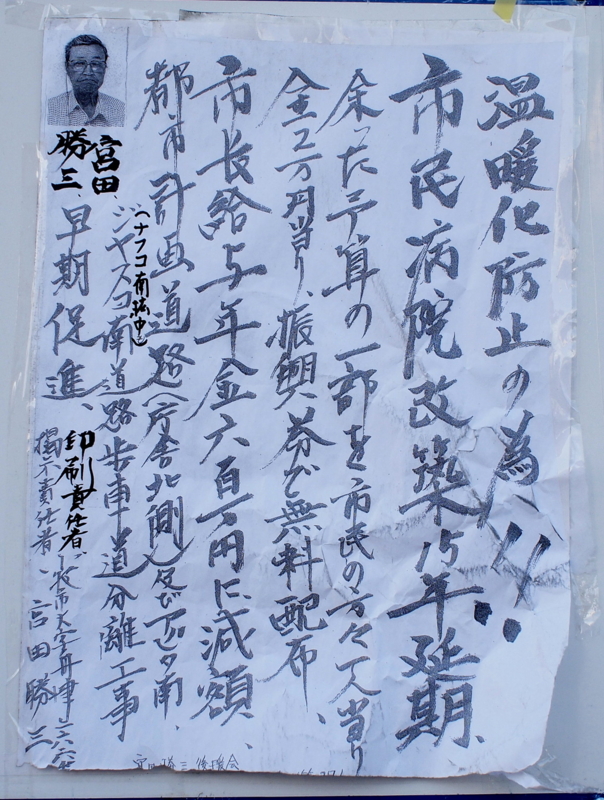 温暖化防止の為!!
市民病院改築15年延期、
余った予算の一部を市民の方々一人当り
全2万円当り、振興券で無料配布、
市長給与年金六百万円に減額、
都市計画道路(庁舎北側)及び
南、
(ナフコ南強中)
ジャスコ南道路歩車道分離工事
早期促進、
宮田
勝三
印刷責任者
掲示責任者、宮田勝三
宮田勝三後援会